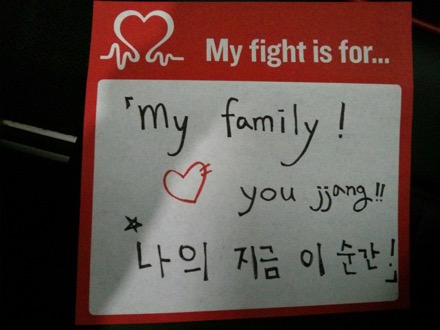 My fight is for...
「My family!
you jjang!!
나의 지금 이 순간!」